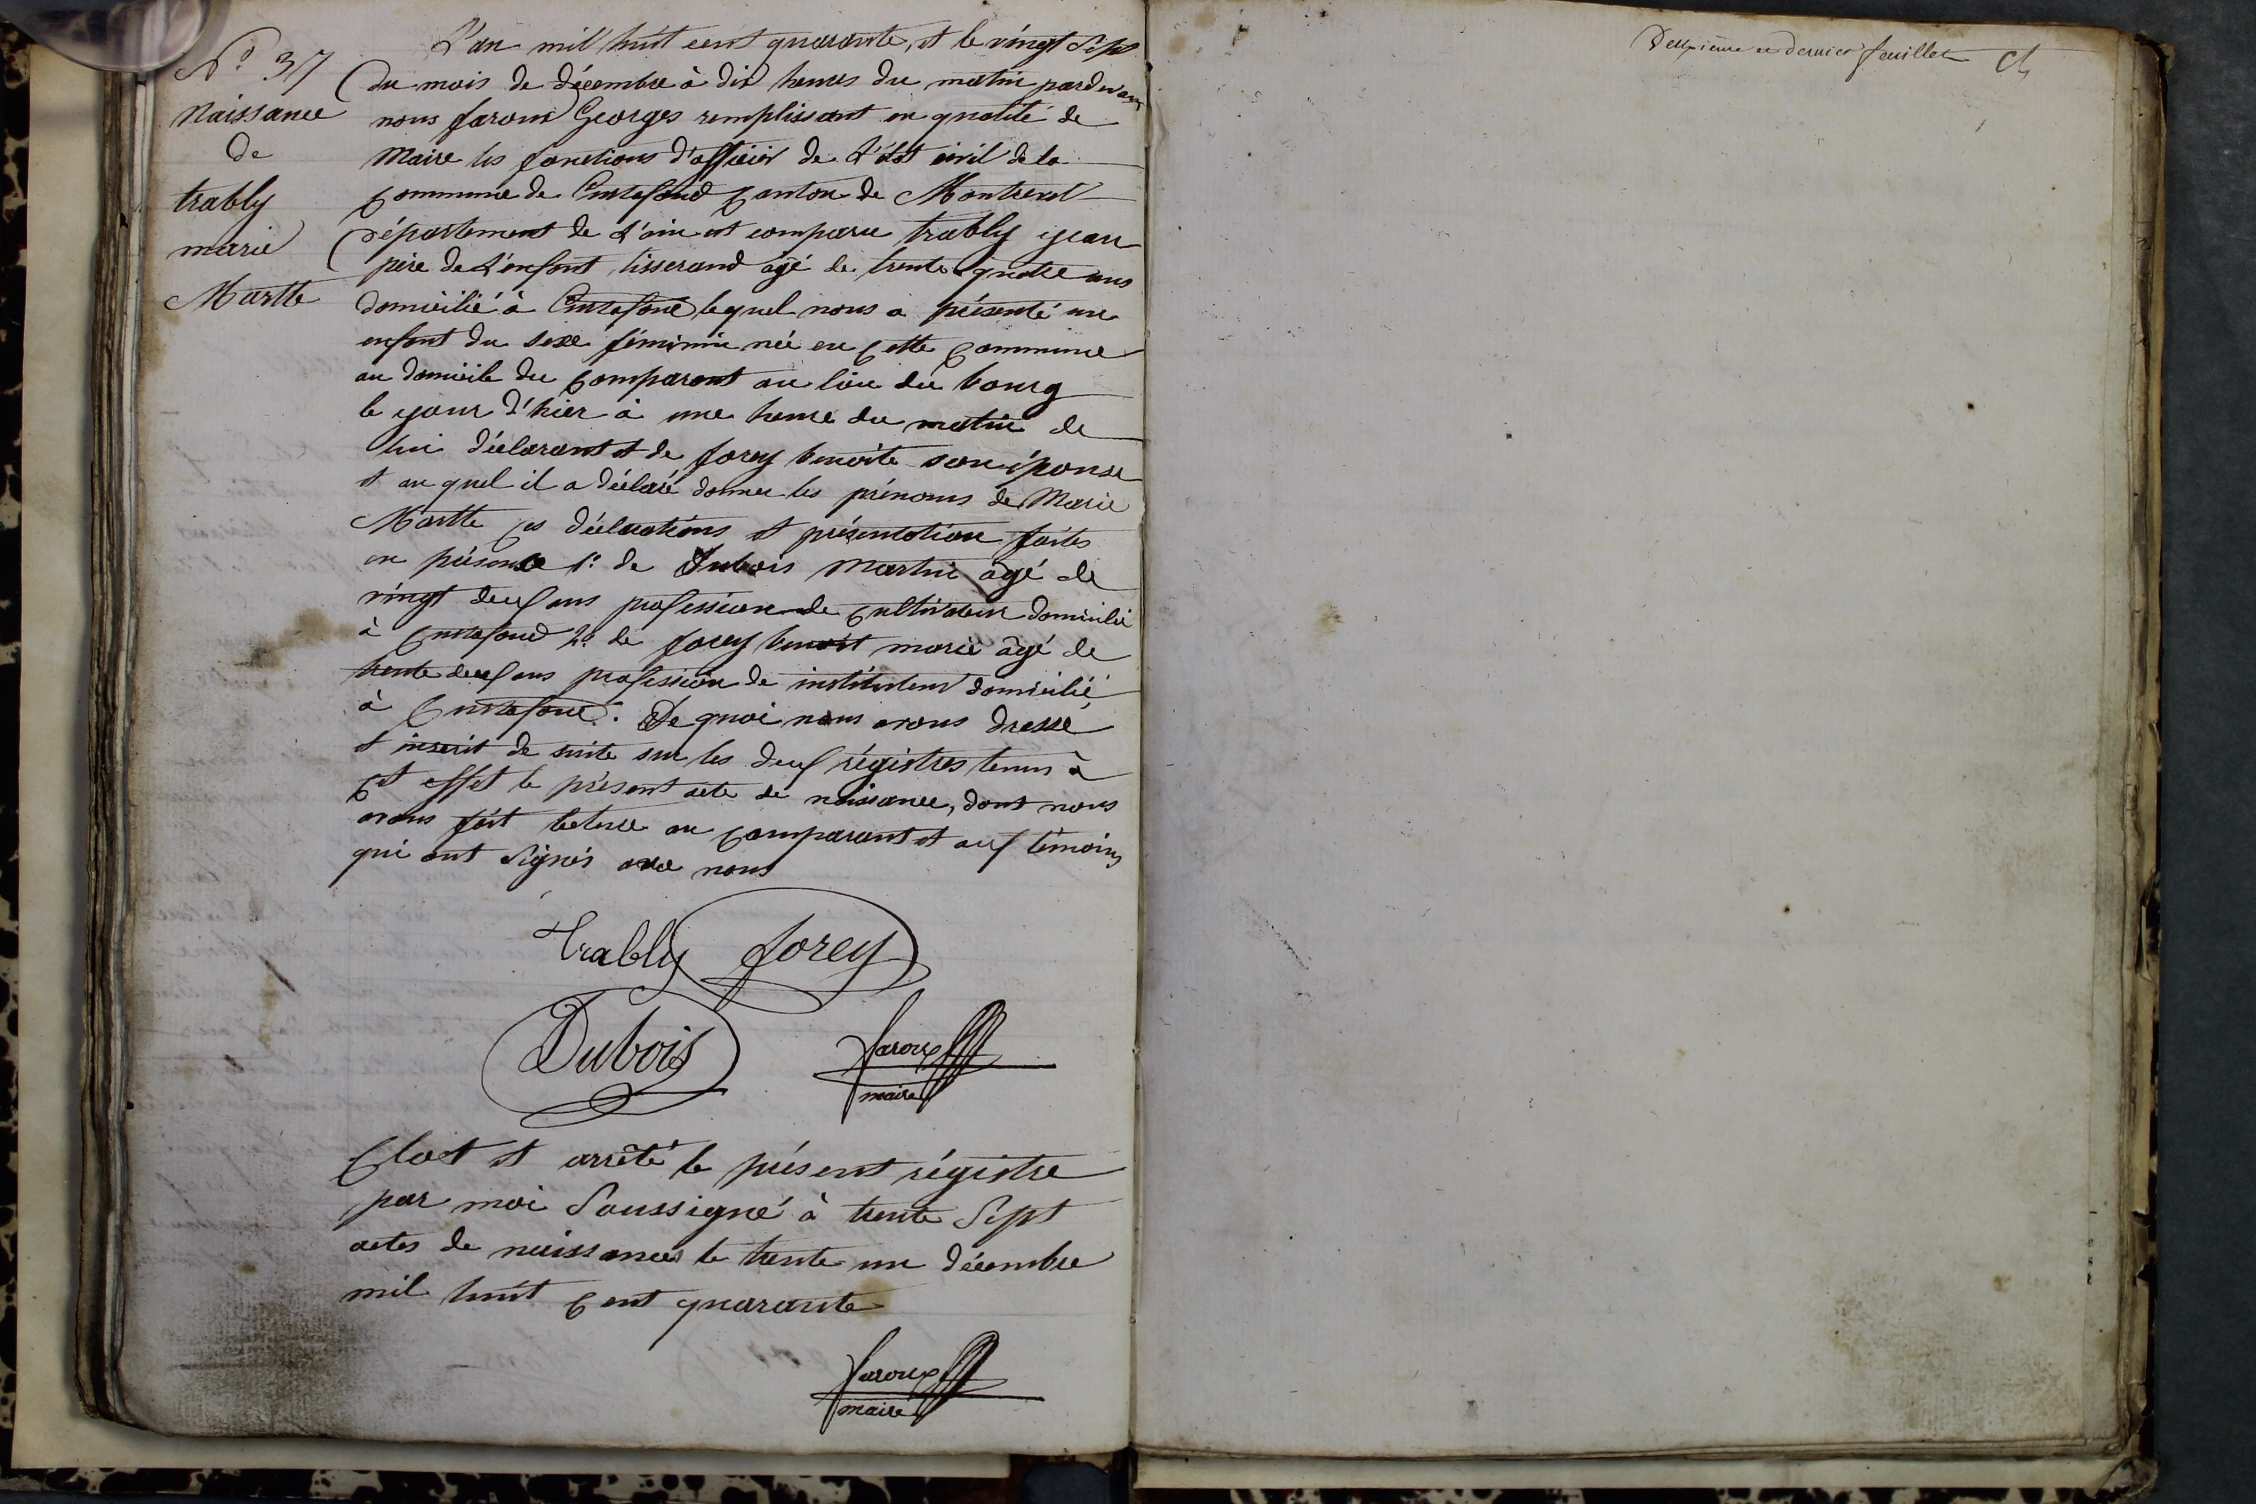 N.º 37
Naissance
de
trably
marie
Marthe
L'an mil huit cent quarante, et le vingt Sept
du mois de décembre à dix heures du matin pardevant
nous faroux Georges remplissant en qualité de
Maire les fonctions d'officier de l'état civil de la
commune de Curtafond canton de Montrevel
département de l'ain est comparu trably jean
père de l'enfant, tisserand âgé de trente quatre ans
domicilié à Curtafond lequel nous a présenté un
enfant du sexe féminin née en cette commune
au domicile du comparant au lieu du bourg
le jour d'hier à une heure du matin de
lui déclarant et de forey benoite son épouse
et au quel il a déclaré donner les prénoms de Marie
Marthe ces déclarations et présentation faites
en présence 1.º de Dubois Martin âgé de
vingt deux ans profession de cultivateur domicilié
à Curtafond 2.º de forey benoit marie âgé de
trente deux ans profession de instituteur domicilié
à Curtafond. De quoi nous avons dressé
et inscrit de suite sur les deux régistres tenus à
cet effet le présent acte de naissance, dont nous
avons fait lecture au comparant et aux témoins
qui ont signés avec nous
trably forey
Dubois faroux
maire
Clot et arrêté le présent régistre
par moi Soussigné à trente Sept
actes de naissances le trente un décembre
mil huit cent quarante
faroux
maire
Deuxième et dernier feuillet